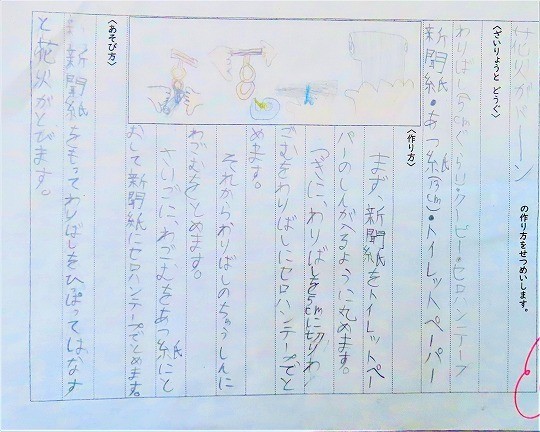 花火がドーン
の作り方をせつめいします。
〈ざいりょうと どうぐ〉
わりばし(5cmぐらい)・クーピー・セロハンテープ
新聞紙・あつ紙(15cm)・トイレットペーパー
〈作り方〉
まず、新聞紙をトイレットペー
パーのしんが入るように丸めます。
つぎに、わりばしを5cmに切りわ
ごむをわりばしにセロハンテープでと
めます。
それからわりばしのちゅうしんに
わごむをとめます。
さいごに、わごむをあつ紙にと
おして新聞紙にセロハンテープでとめます。
〈あそび方〉
新聞紙をもってわりばしをひっぱってはなす
と花火がとびます。